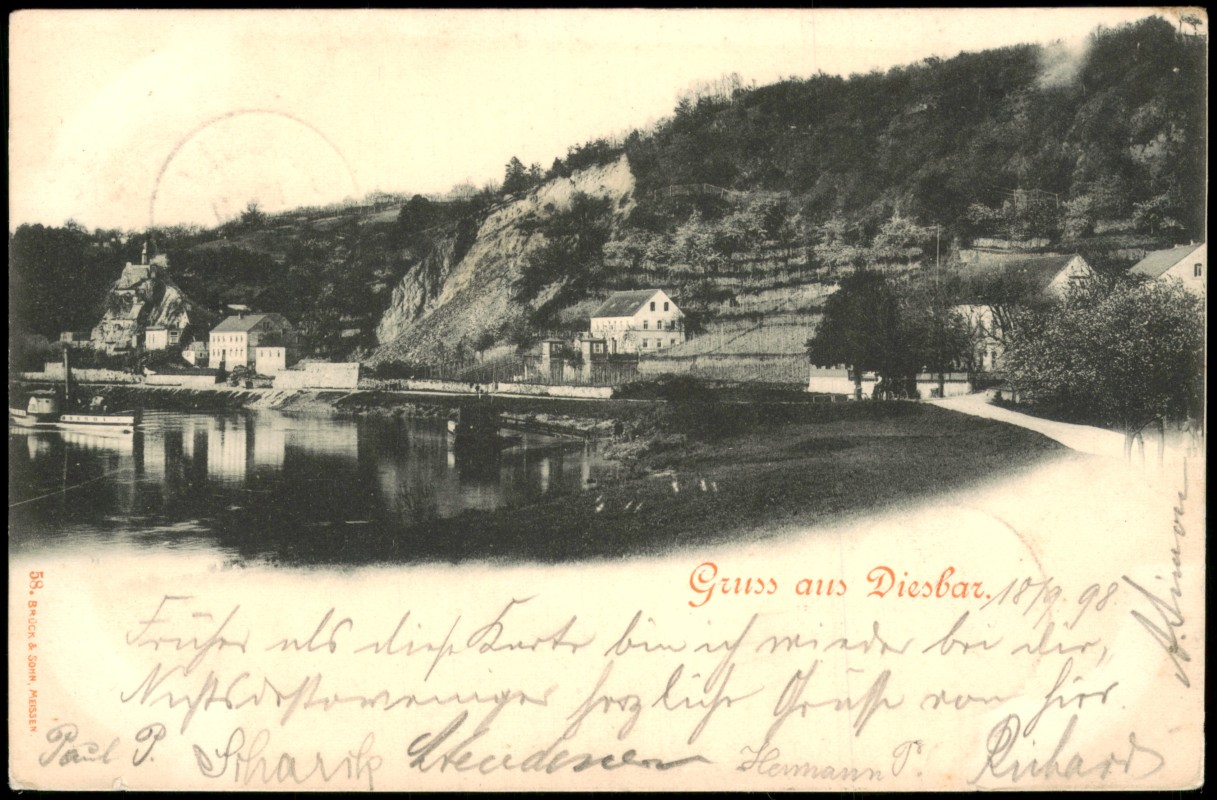 Gruss aus Diesbar.
18/9. 98.
Früher als diese Karte bin ich wieder bei dir,
Nichtsdestoweniger herzliche Grüße von hier.
Paul P.
Hermann P.
Richard
A. Simon
58. BRÜCK & SOHN, MEISSEN